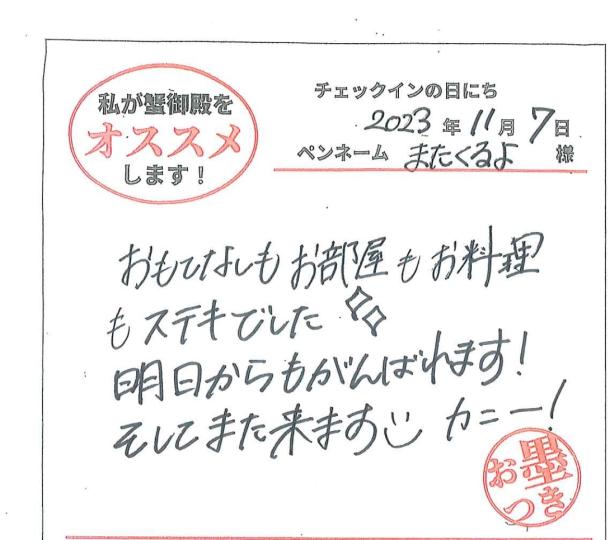 私が蟹御殿を
オススメ
します！
チェックインの日にち
2023年11月7日
ペンネーム またくるよ 様
おもてなしもお部屋もお料理
もステキでした
明日からもがんばれます!
そしてまた来ます カニー!
お墨
つき